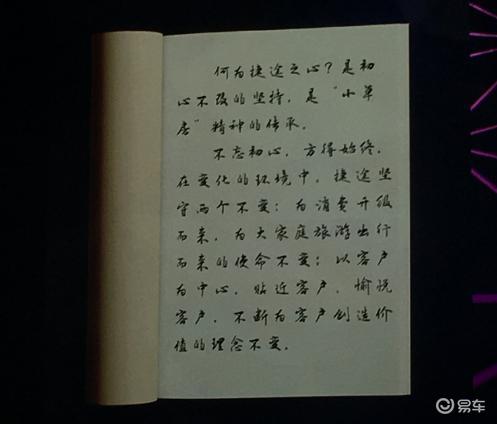 何为捷途之心？是初
心不改的坚持，是“小草
房”精神的传承。
不忘初心，方得始终。
在变化的环境中，捷途坚
守两个不变：为消费升级
而来，为大家庭旅游出行
而来的使命不变；以客户
为中心，贴近客户，愉悦
客户，不断为客户创造价
值的理念不变。
易车